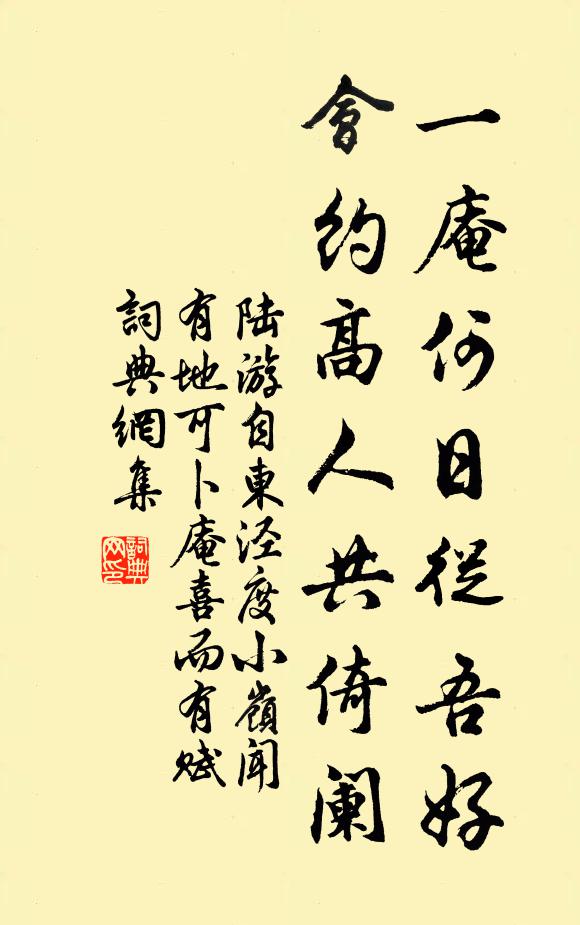 一庵何日從吾好
會約高人共倚阑
陆游自東泾度小嶺聞
有地可卜庵喜而有赋
詞典網集
詞典网印